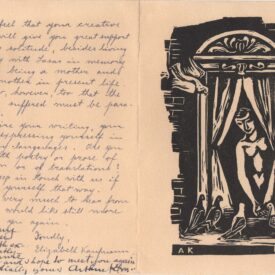 feel that your creative
will give you great support
solitude, besides living
with Lasas in memory
being a mother and
mother in present life.
however, too that the
suffered must be par-
your writing, your
expressing yourself in
languages. Do you
with poetry or prose of
or of translations?
keep in touch with us if
yourself that way.
very much to hear from
would like still more
you again.
Fondly,
Elizabeth Kaufmann
and I hope to meet you again
yours Arthur
AK